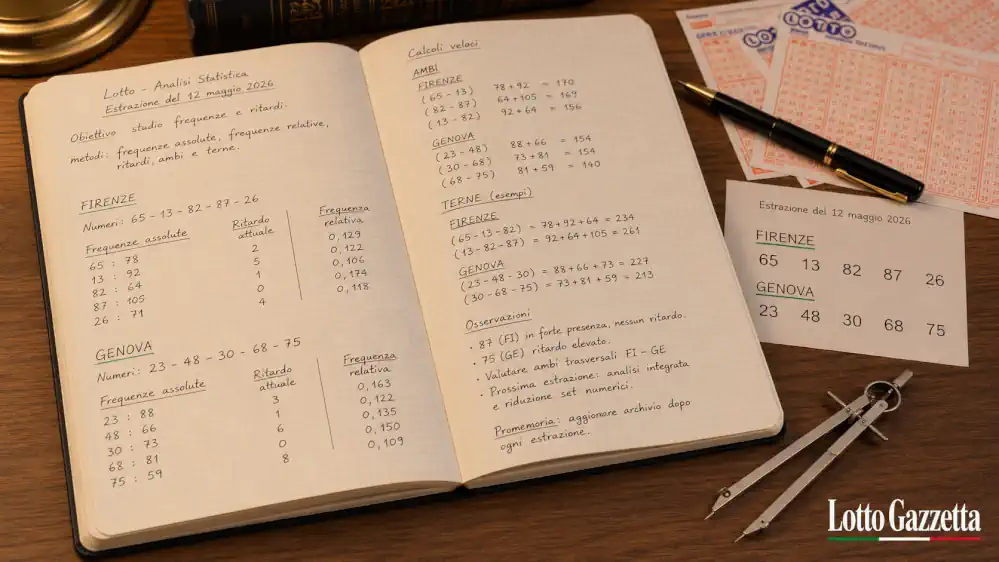 Lotto - Analisi Statistica
Estrazione del 12 maggio 2026
Obiettivo studio frequenze e ritardi.
metodi: frequenze assolute, frequenze relative,
ritardi, ambi e terne.
FIRENZE
Numeri: 65 - 13 - 82 - 87 - 26
Frequenze assolute Ritardo attuale Frequenza relativa
65 : 78 2 0,129
13 : 92 5 0,122
82 : 64 1 0,106
87 : 105 0 0,174
26 : 71 4 0,118
GENOVA
Numeri: 23 - 48 - 30 - 68 - 75
Frequenze assolute Ritardo attuale Frequenza relativa
23 : 88 3 0,163
48 : 66 1 0,122
30 : 73 6 0,135
68 : 81 0 0,150
75 : 59 8 0,109
Calcoli veloci
AMBI
FIRENZE
(65 - 13) 78 + 92 = 170
(82 - 87) 64 + 105 = 169
(13 - 82) 92 + 64 = 156
GENOVA
(23 - 48) 88 + 66 = 154
(30 - 68) 73 + 81 = 154
(68 - 75) 81 + 59 = 140
TERNE (esempi)
FIRENZE
(65 - 13 - 82) = 78 + 92 + 64 = 234
(13 - 82 - 87) = 92 + 64 + 105 = 261
GENOVA
(23 - 48 - 30) = 88 + 66 + 73 = 227
(30 - 68 - 75) = 73 + 81 + 59 = 213
Osservazioni
• 87 (FI) in forte presenza, nessun ritardo.
• 75 (GE) ritardo elevato.
• Valutare ambi trasversali FI - GE
• Prossima estrazione: analisi integrata
e riduzione set numerici.
Promemoria: aggionare archivio dopo
ogni estrazione.
LOTTO
Estrazione del 12 maggio 2026
FIRENZE
65 13 82 87 26
GENOVA
23 48 30 68 75
Lotto Gazzetta